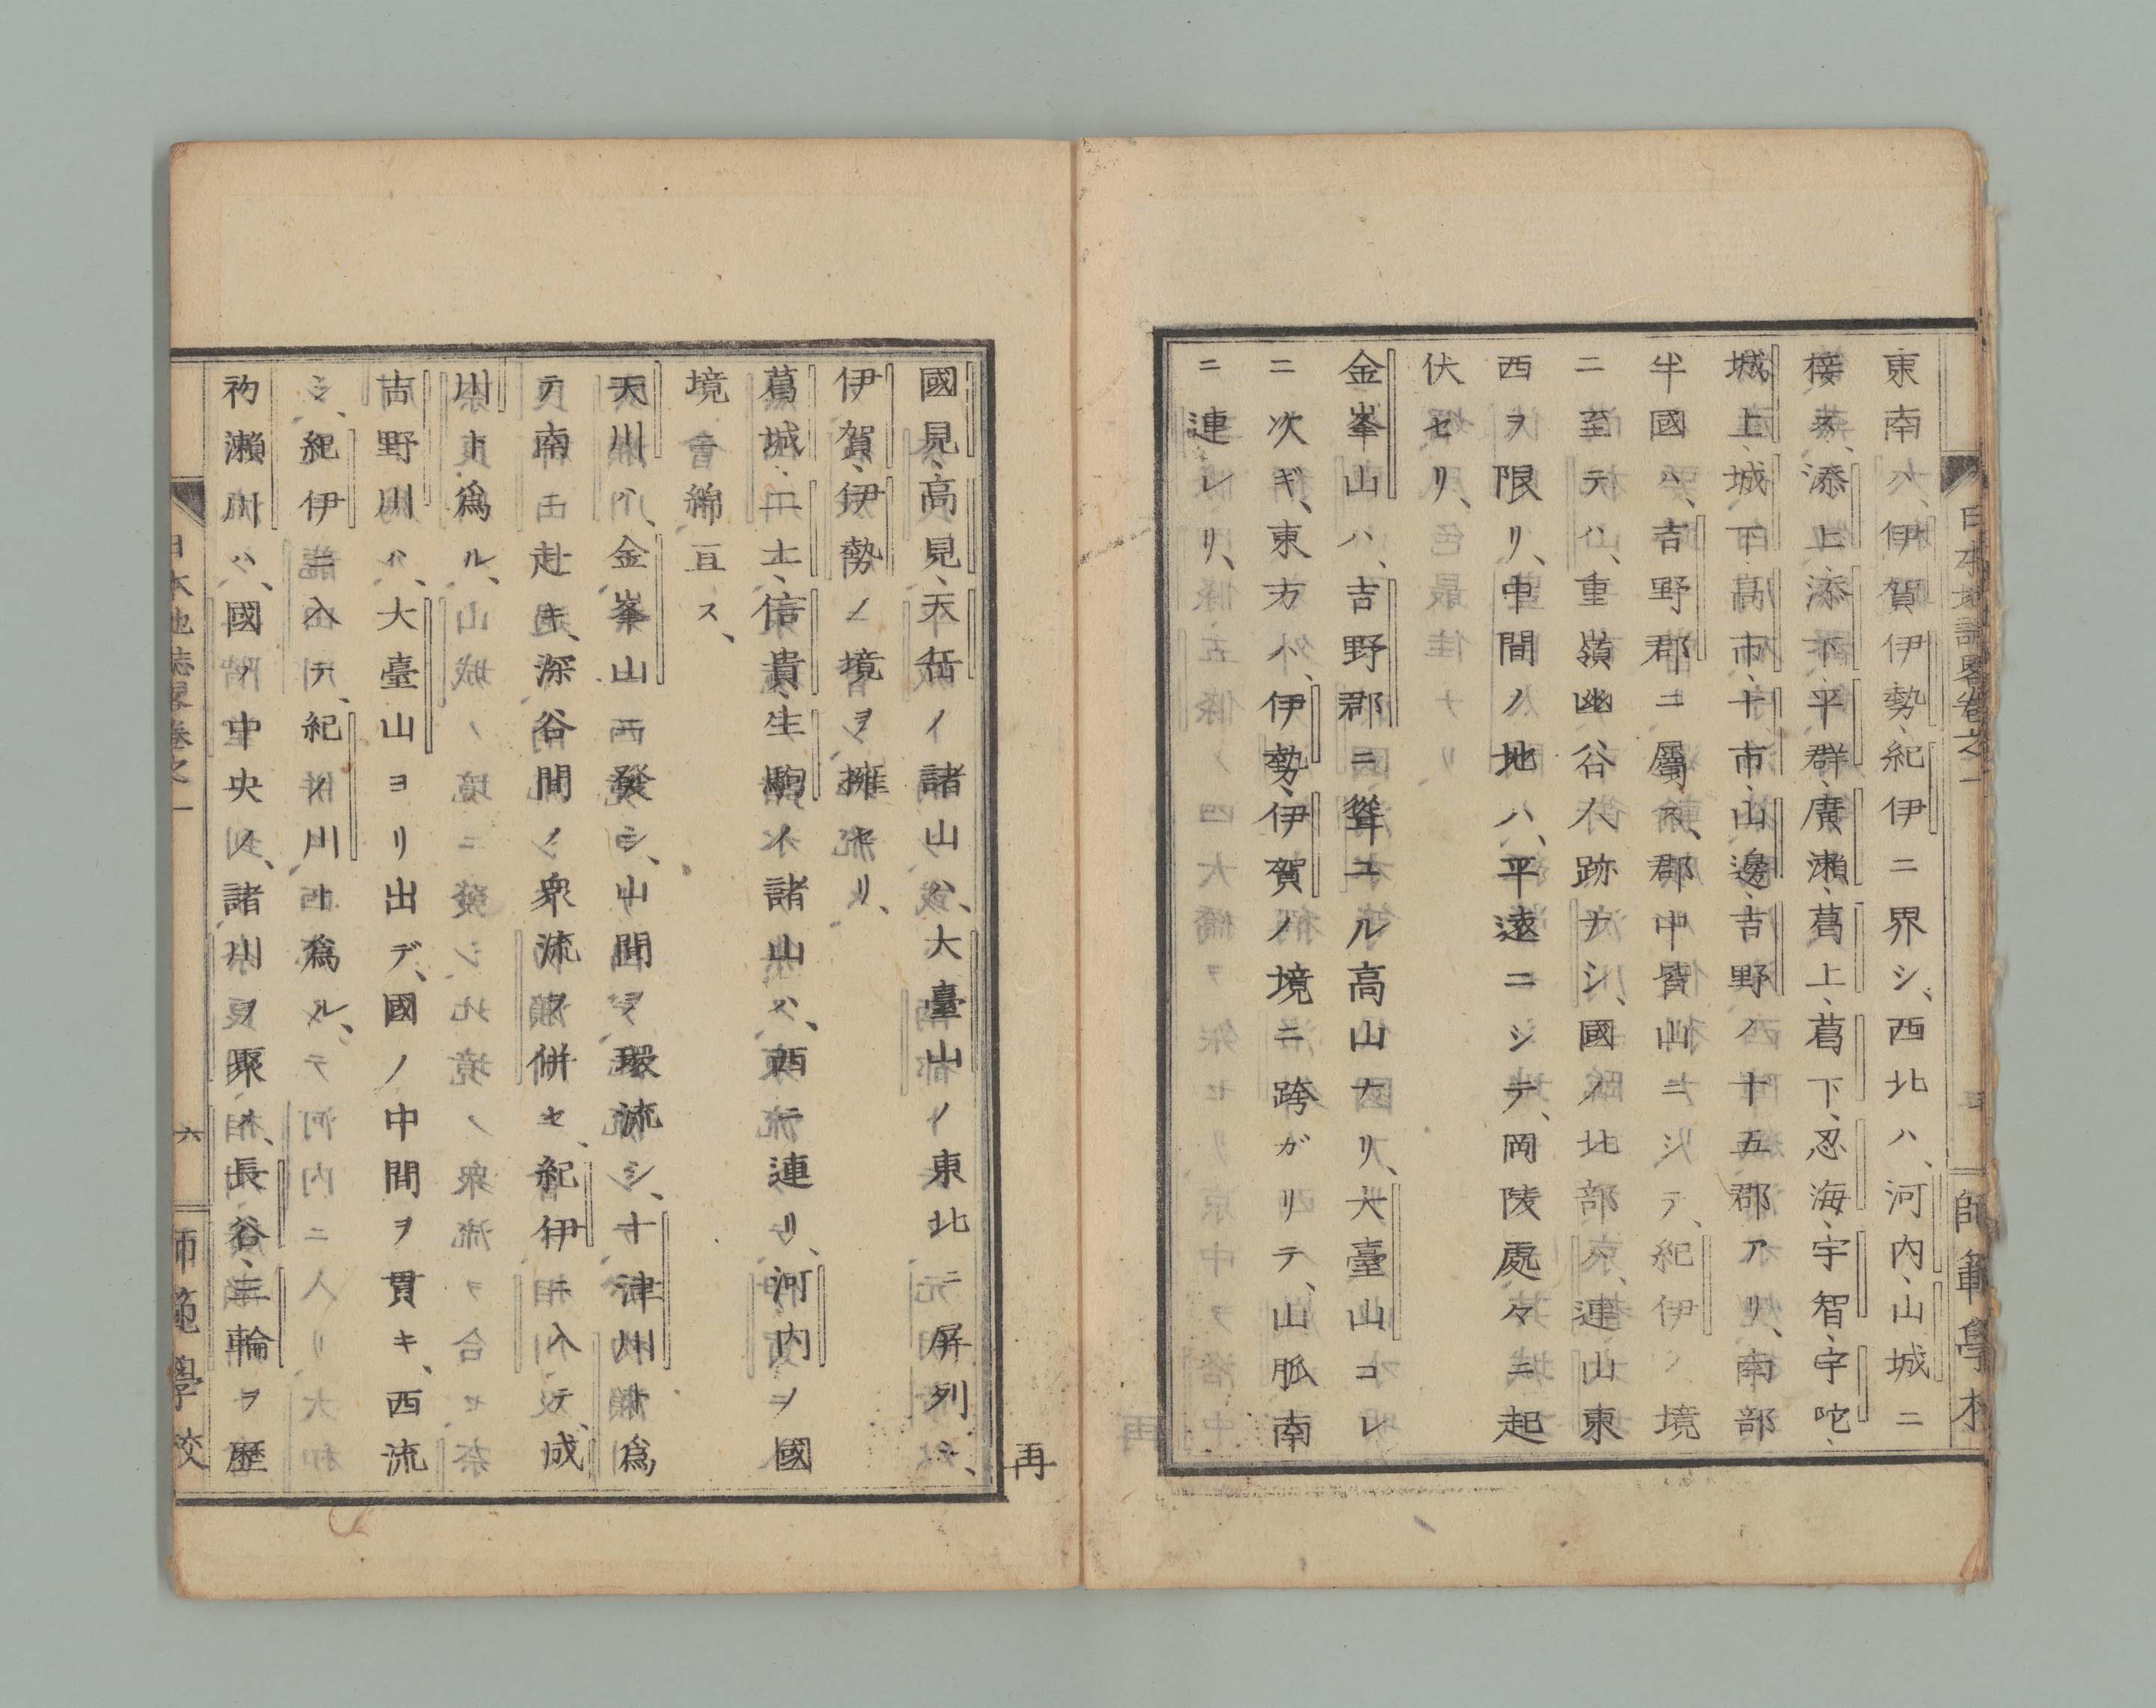 日本地誌畧卷之一
師範學校
東南ハ、伊賀伊勢、紀伊ニ界シ、西北ハ、河内、山城ニ
接ス、添上、添下、平群、廣瀬、葛上、葛下、忍海、宇智、宇陀、
城上、城下、高市、十市、山邊、吉野ノ十五郡アリ、南部
半國ハ、吉野郡ニ屬ス、郡中皆山ニシテ、紀伊ノ境
ニ至テハ、重嶺幽谷人跡ナシ、國ノ北部ハ、連山東
西ヲ限リ、中間ノ地ハ、平遠ニシテ、岡陵處々ニ起
伏セリ、
金峯山ハ、吉野郡ニ聳ユル高山ナリ、大臺山コレ
ニ次ギ、東方ハ、伊勢、伊賀ノ境ニ跨ガリテ、山脈南
ニ連レリ、
再
國見、高見、天岳ノ諸山ハ、大臺山ノ東北ニ屏列シ、
伊賀、伊勢ノ境ヲ擁セリ、
葛城、二上、信貴、生駒ノ諸山ハ、西ニ連リ、河内ノ國
境ニ綿亘ス、
天川ハ、金峯山ニ發シ、山間ヲ環流シ、十津川ト爲
テ南ニ赴キ、深谷間ノ衆流ヲ併セ、紀伊ニ入テ、成
川ト爲ル、
吉野川ハ、大臺山ヨリ出デ、國ノ中間ヲ貫キ、西流
シ、紀伊ニ入テ、紀ノ川ト爲ル、
初瀬川ハ、國ノ中央ノ、諸川ヲ聚メ、長谷、三輪ヲ歷
日本地誌畧卷之一
六
師範學校